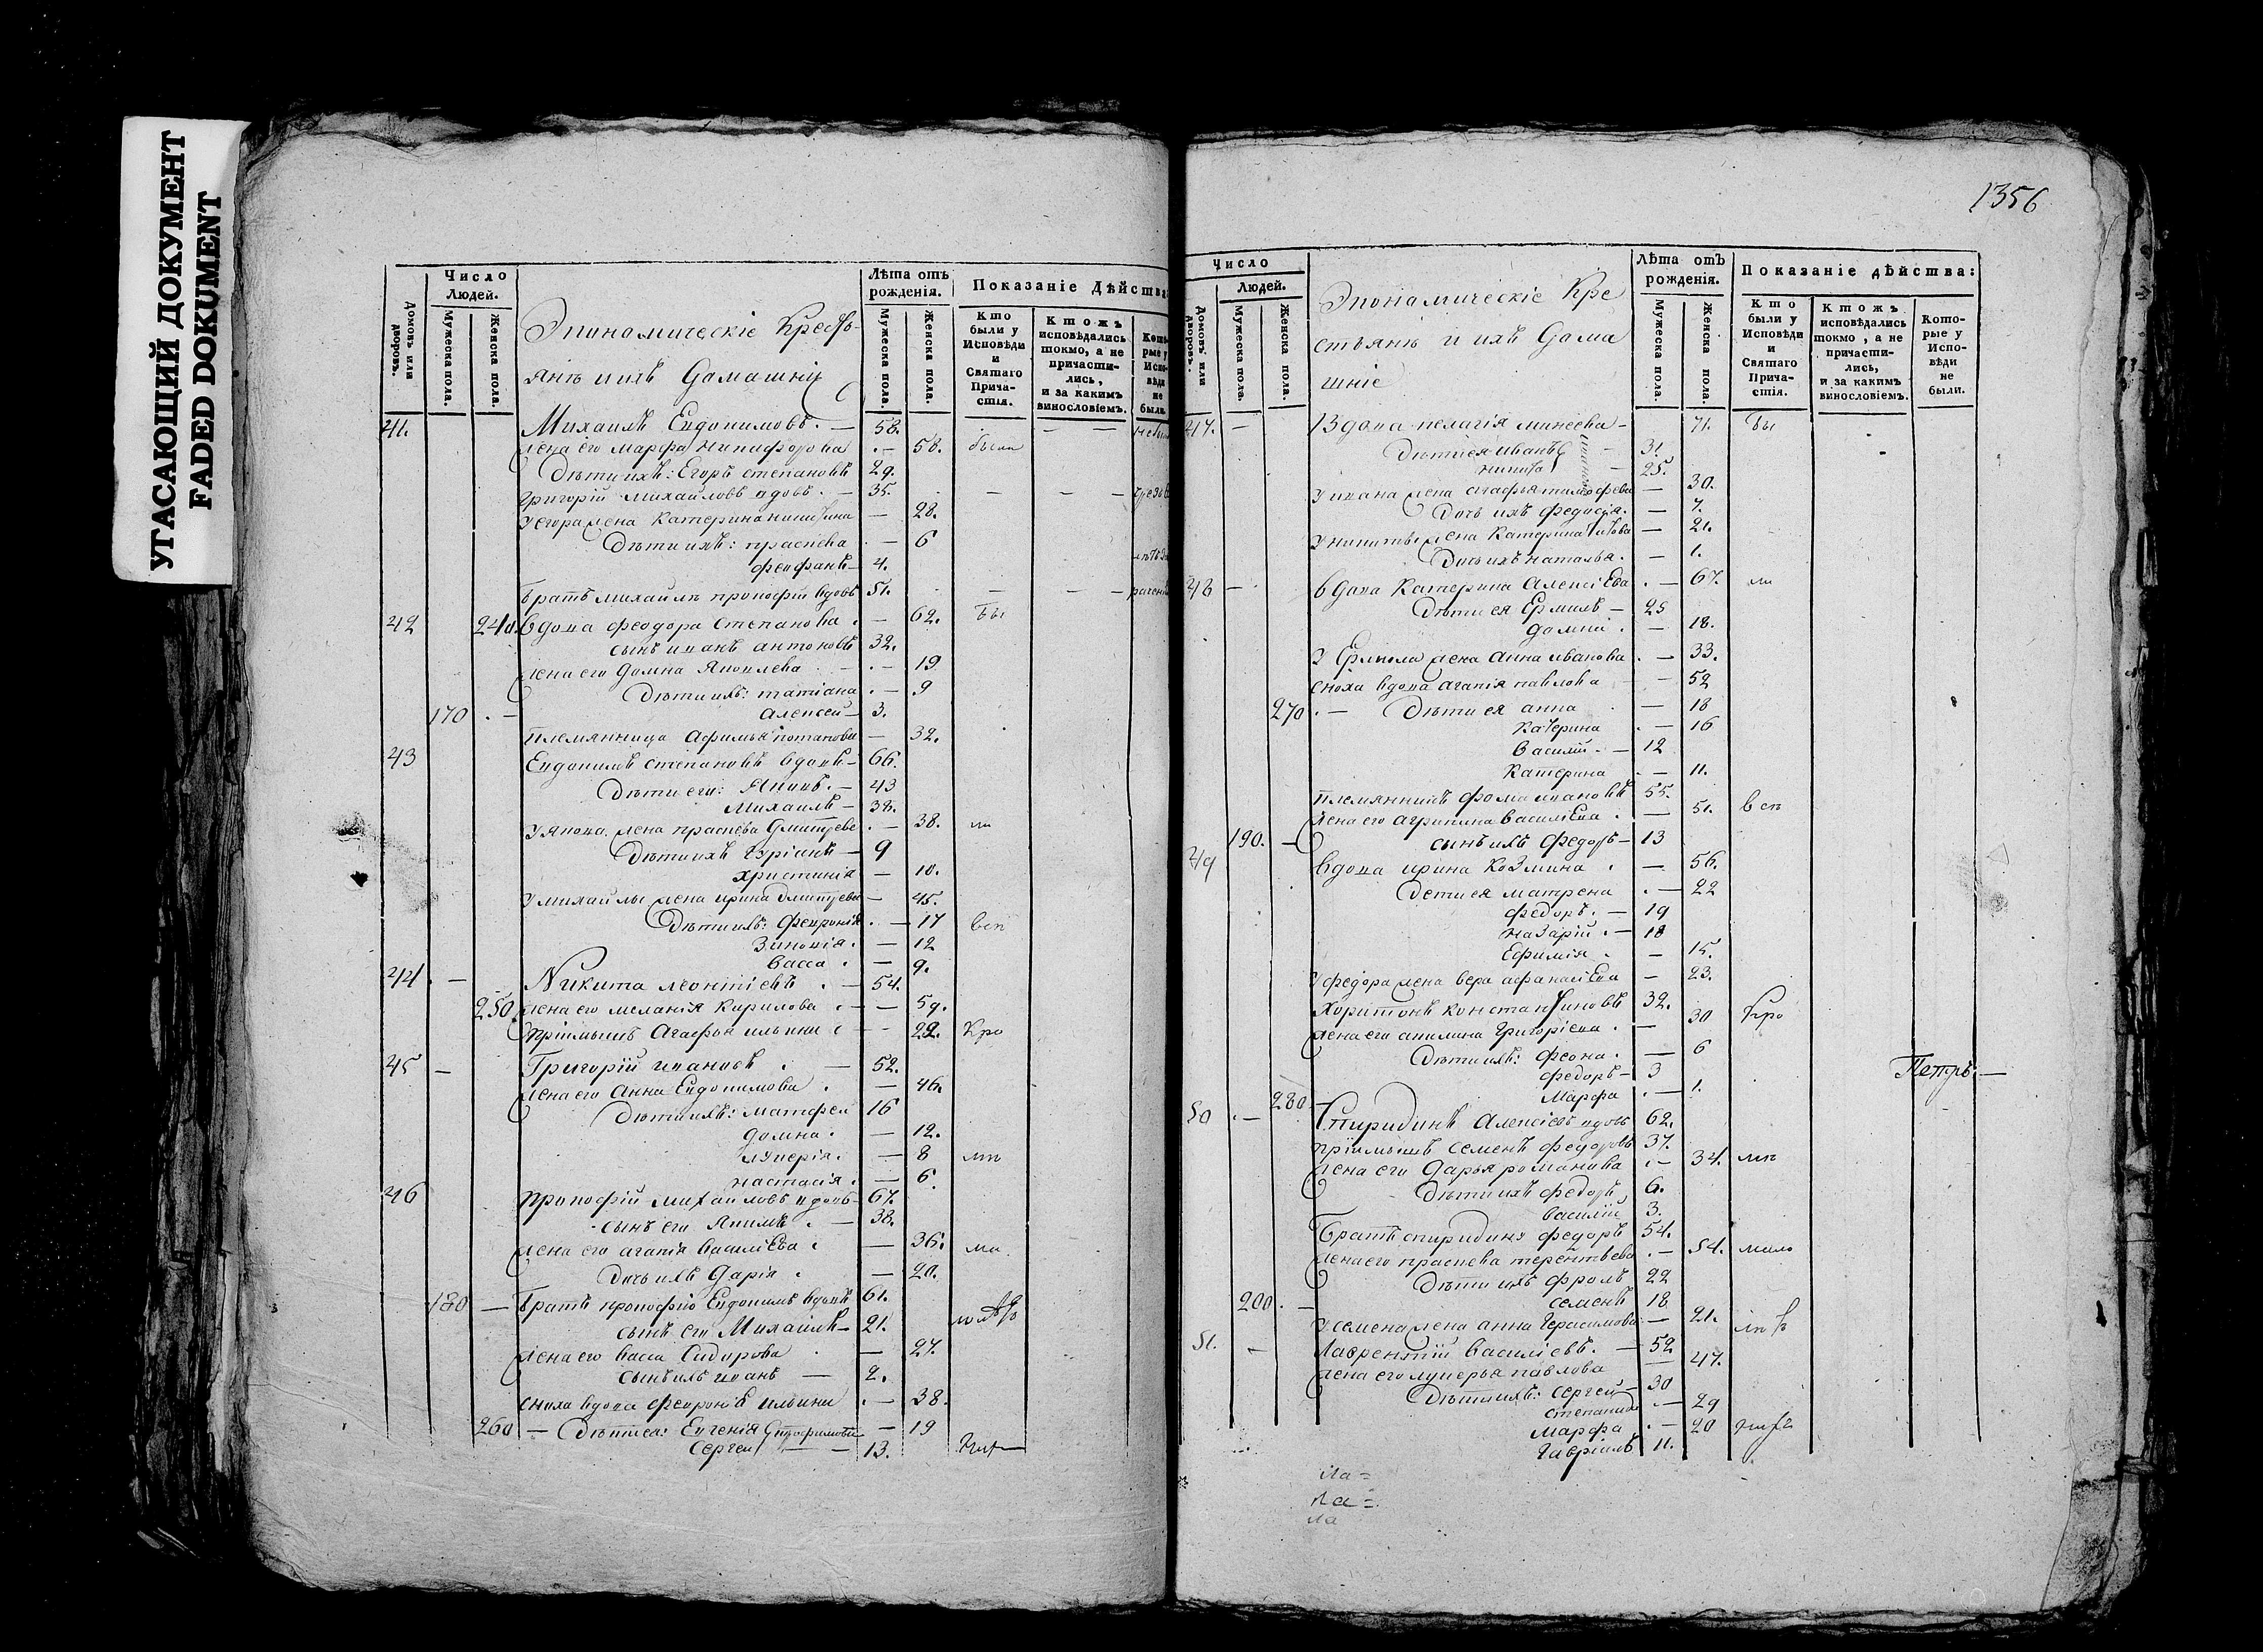 УГАСАЮЩИЙ ДОКУМЕНТ
FADED DOKUMENT
Число Людей.
Лѣта отъ рожденія.
Показаніе Дѣйства:
Домовъ или дворовъ.
Мужеска пола.
Женска пола.
Экономическіе Кресть-
янъ и ихъ домашни
Мужеска пола.
Женска пола.
Кто были у Исповѣди и Святаго Причастія.
Ктожъ исповѣдались токмо, а не причастились, и за какимъ винословіемъ.
Которые у Исповѣди не были.
41. Михаилъ Евдокимовъ. — 58.
жена его Марфа Никифорова — 58. были
Дѣти ихъ: Егоръ степановъ 29.
Григорій михайловъ вдовъ. — 35.
У егора жена Катерина никитина — 28.
Дѣти ихъ: праскева — 6
феофанъ — 4.
братъ михаилъ прокофій вдовъ 51.
42 вдова феодора степанова — 62. бы
сынъ иванъ антоновъ 32.
жена его домна Яковлева — 19
Дѣти ихъ: татіана — 9
170 алексей — 3.
племянница Афимья потапова — 32.
43 Евдокимъ степановъ вдовъ — 66.
Дѣти его: Яковъ. — 43
Михаилъ — 38.
У якова жена праскева Дмитрева — 38. ли
Дѣти ихъ Гуріанъ — 9
христинія — 10.
У михайлы жена ирина дмитрева — 45.
Дѣти ихъ: феврония — 17 всп
Зиновія — 12
васса — 9.
44. Никита леонтіевъ — 54.
250 жена его меланія кирилова — 59.
пріимышъ Агафья ильина — 22. Кро
45 Григорій ивановъ — 52.
жена его Анна Евдокимова — 46.
Дѣти ихъ: матфей 16
домна — 12.
лукерія — 8
настасія — 6.
46 прокофій михаиловъ вдовъ — 67.
сынъ его Якимъ — 38.
жена его агапія василіева — 36.
Дочь ихъ дарія — 20.
180 — братъ прокофію Евдокимъ вдовъ 61.
сынъ его Михаилъ — 21.
жена его васса сидорова — 27.
сынъ ихъ иванъ — 2.
сноха вдова февронія ильина — 38.
260 — Дѣти ея: Евгенія — 19
Сергей — 13.
1356
Число Людей.
Лѣта отъ рожденія.
Показаніе дѣйства:
Домовъ или дворовъ.
Мужеска пола.
Женска пола.
Экономическіе Кре
стьянъ и ихъ дома
шніе
Мужеска пола.
Женска пола.
Кто были у Исповѣди и Святаго Причастія.
Ктожъ исповѣдались токмо, а не причастились, и за какимъ винословіемъ.
Которые у Исповѣди не были.
47. — Вдова пелагія минеева — 71. бы
Дѣти ея иванъ — 31
никита — 25.
У ивана жена агафья тимофева — 30.
Дочь ихъ федосія. — 7.
У никиты жена Катерина — 21.
Дочь ихъ наталья. — 1.
48 — вдова Катерина Алексіева — 67. ли
Дѣти ея Ермилъ — 25
домна — 18.
У Ермила жена анна иванова — 33.
сноха вдова агапія павлова — 52
270 — Дѣти ея анна — 18
катерина — 16
василій — 12
катерина — 11.
племянникъ фома ивановъ 55.
жена его агрипина василіева — 51. всп
190. — сынъ ихъ федоръ — 13
49 вдова ирина козмина — 56.
дети ея матрена — 22
федоръ. — 19
назарій. — 18
Ефимія — 15.
У федора жена вера афанасіева — 23.
Харитонъ константиновъ 32. Кро
жена его акилина григоріева — 30
Дѣти ихъ: феона. — 6
федоръ — 3 Петръ —
280 — Марфа — 1.
50 — Спиридинъ Алексіевъ вдовъ 62.
пріимышъ семенъ федоровъ 37.
жена его дарья романова — 34.
Дѣти ихъ федоръ 6.
василій 3.
братъ спиридину федоръ 54.
жена его праскева терентьева — 54.
Дѣти ихъ фролъ 22
200. — семенъ 18
У семена жена анна герасимова — 21.
51. — Лаврентій василіевъ. — 52
жена его лукерья павлова — 47.
Дѣти ихъ: сергей — 30
степанида — 29
марфа — 20
гавріилъ 11.
Ла =
Ла =
Ла